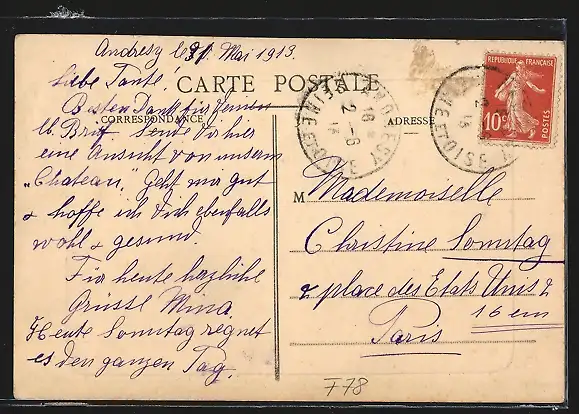 Andresy le 31. Mai 1913.
Liebe Tante!
CARTE POSTALE
Besten Dank für Deinen
CORRESPONDANCE
lb. Brief. Sende Dir hier
eine Ansicht von unserm
"Chateau". Geht mir gut
& hoffe ich Dich ebenfalls
wohl & gesund.
Für heute herzliche
Grüsse Mina.
Heute Sonntag regnet
es den ganzen Tag.
ANDRESY
16
2-6
13
SEINE ET OISE
ADRESSE
REPUBLIQUE FRANÇAISE
10c
POSTES
M Mademoiselle
Christine Sonntag
2 place des Etats Unis 2
Paris
16 em
F78